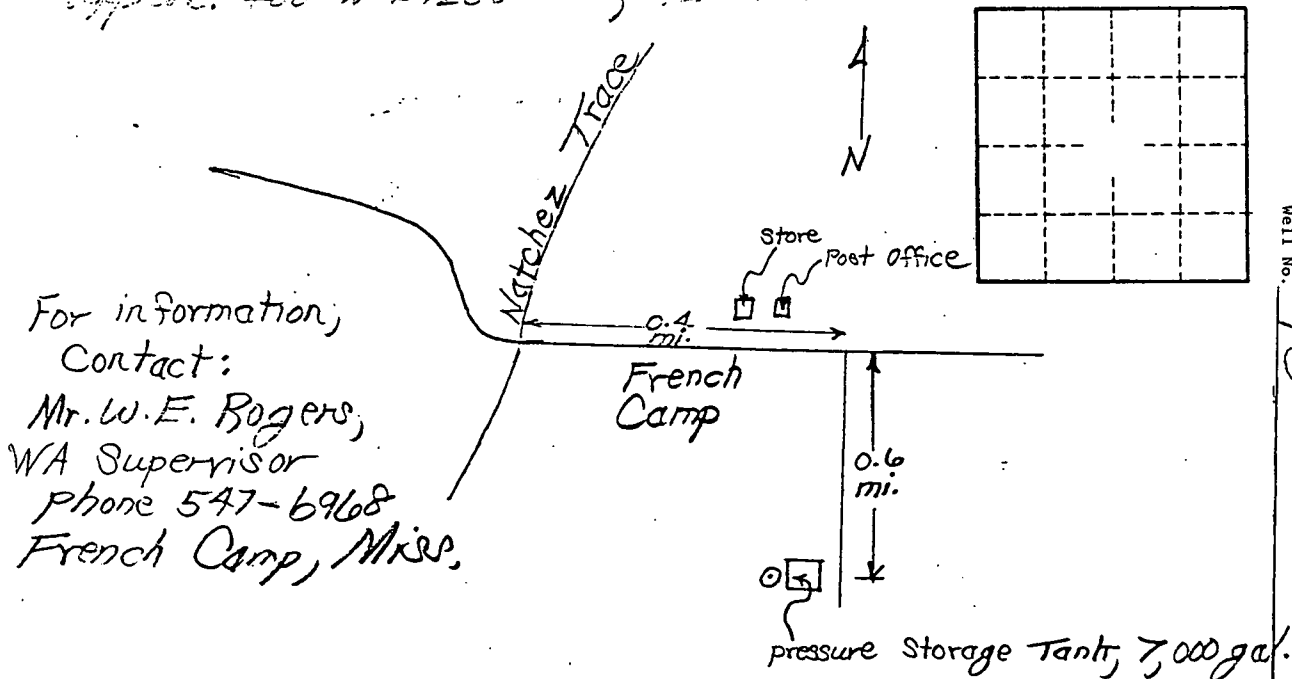 Natchez Trace
N
Store
Post Office
Well No.
0.4
mi.
French
Camp
For information,
Contact:
Mr. W. E. Rogers,
WA Supervisor
Phone 547-6968
French Camp, Miss.
0.6
mi.
pressure Storage Tank, 7,000 gal.